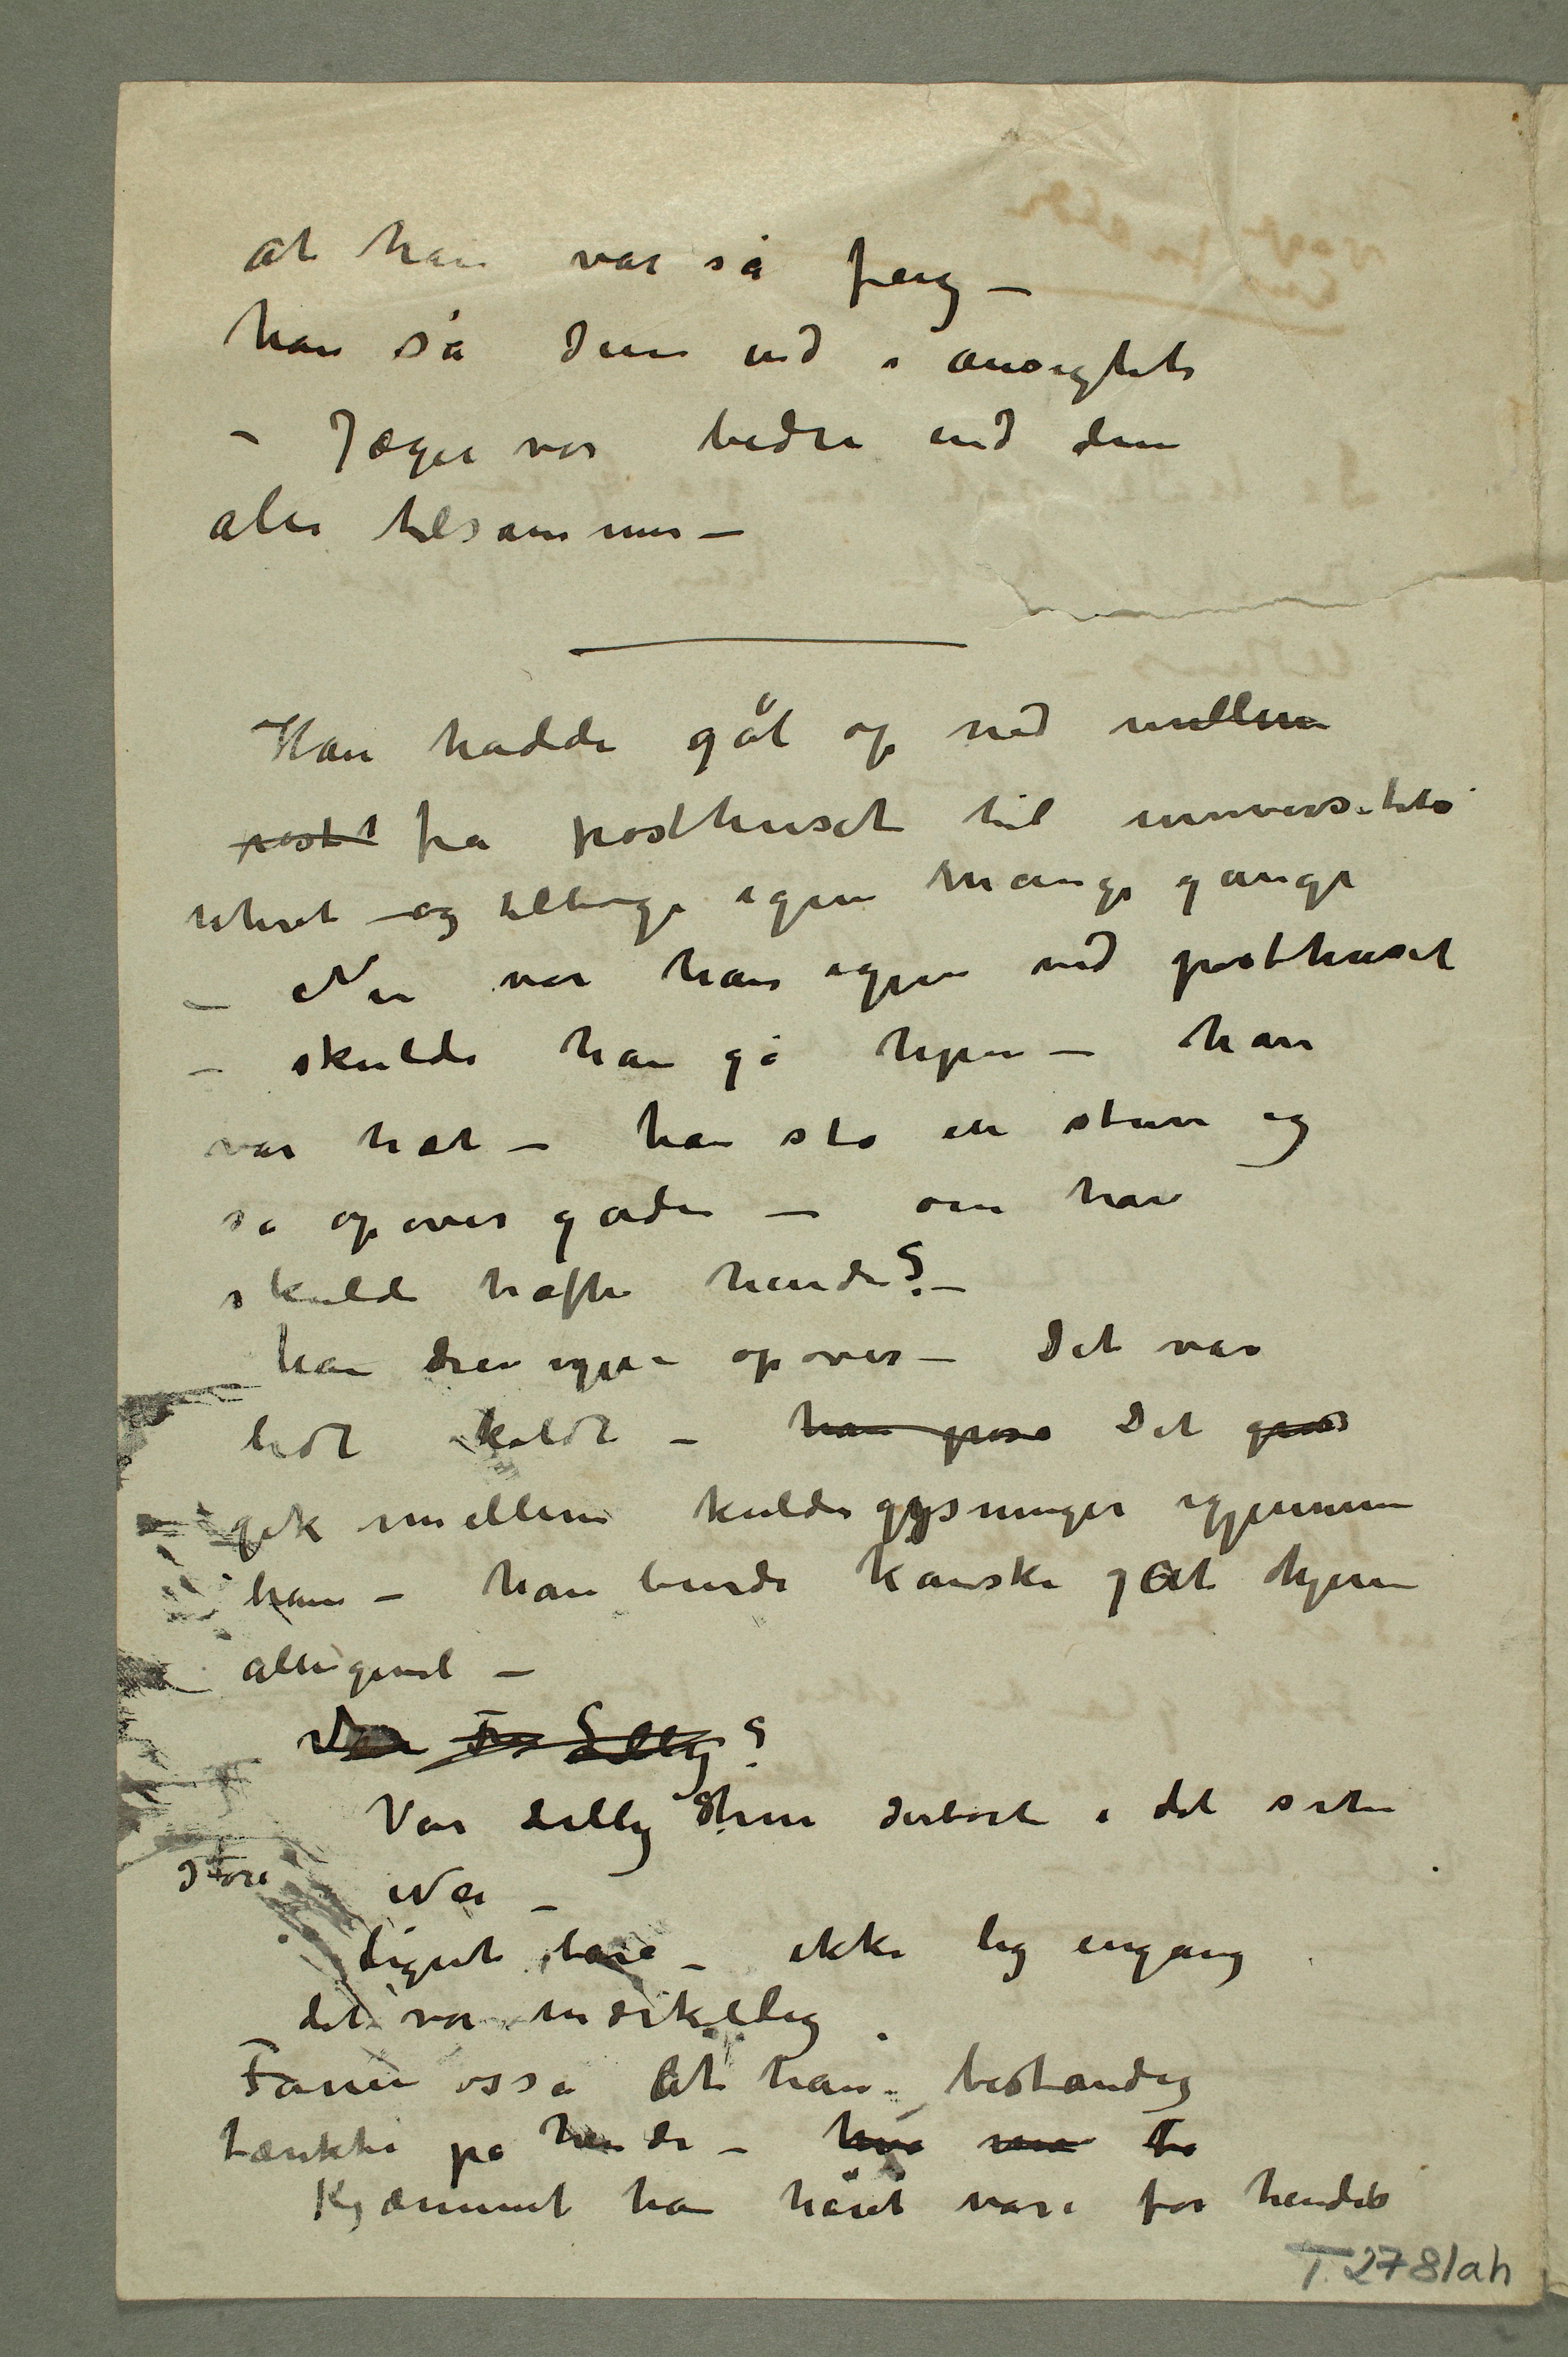 at han var så feig –
han så dem ind i ansigtet
– Jæger var bedre end dem
alle tilsammen –
Han hadde gåt op ned mellem
postt fra posthuset til universitets
uhret – og tilbage igen mange gange
– Nu var han igjen ved posthuset
– skulde han gå hjem – han
var træt – han sto en stun og
så opover gaden – om han
skulde træffe hende? –
han drev igjen opover – Det var
lidt koldt – han Det
gik imellem kuldegysninger igjennem
ham – han burde kanske gåt hjem
alligevel –
Var Fr Lilly?
Var Lilly Stm derborte i det sorte
store
Nei –
Lignet bare – ikke lig engang
det var mærkelig
Fanen osså At han bestandig
tænkte på hende – hva
Kjæmmet han håret var i for hendes
T 2781ah